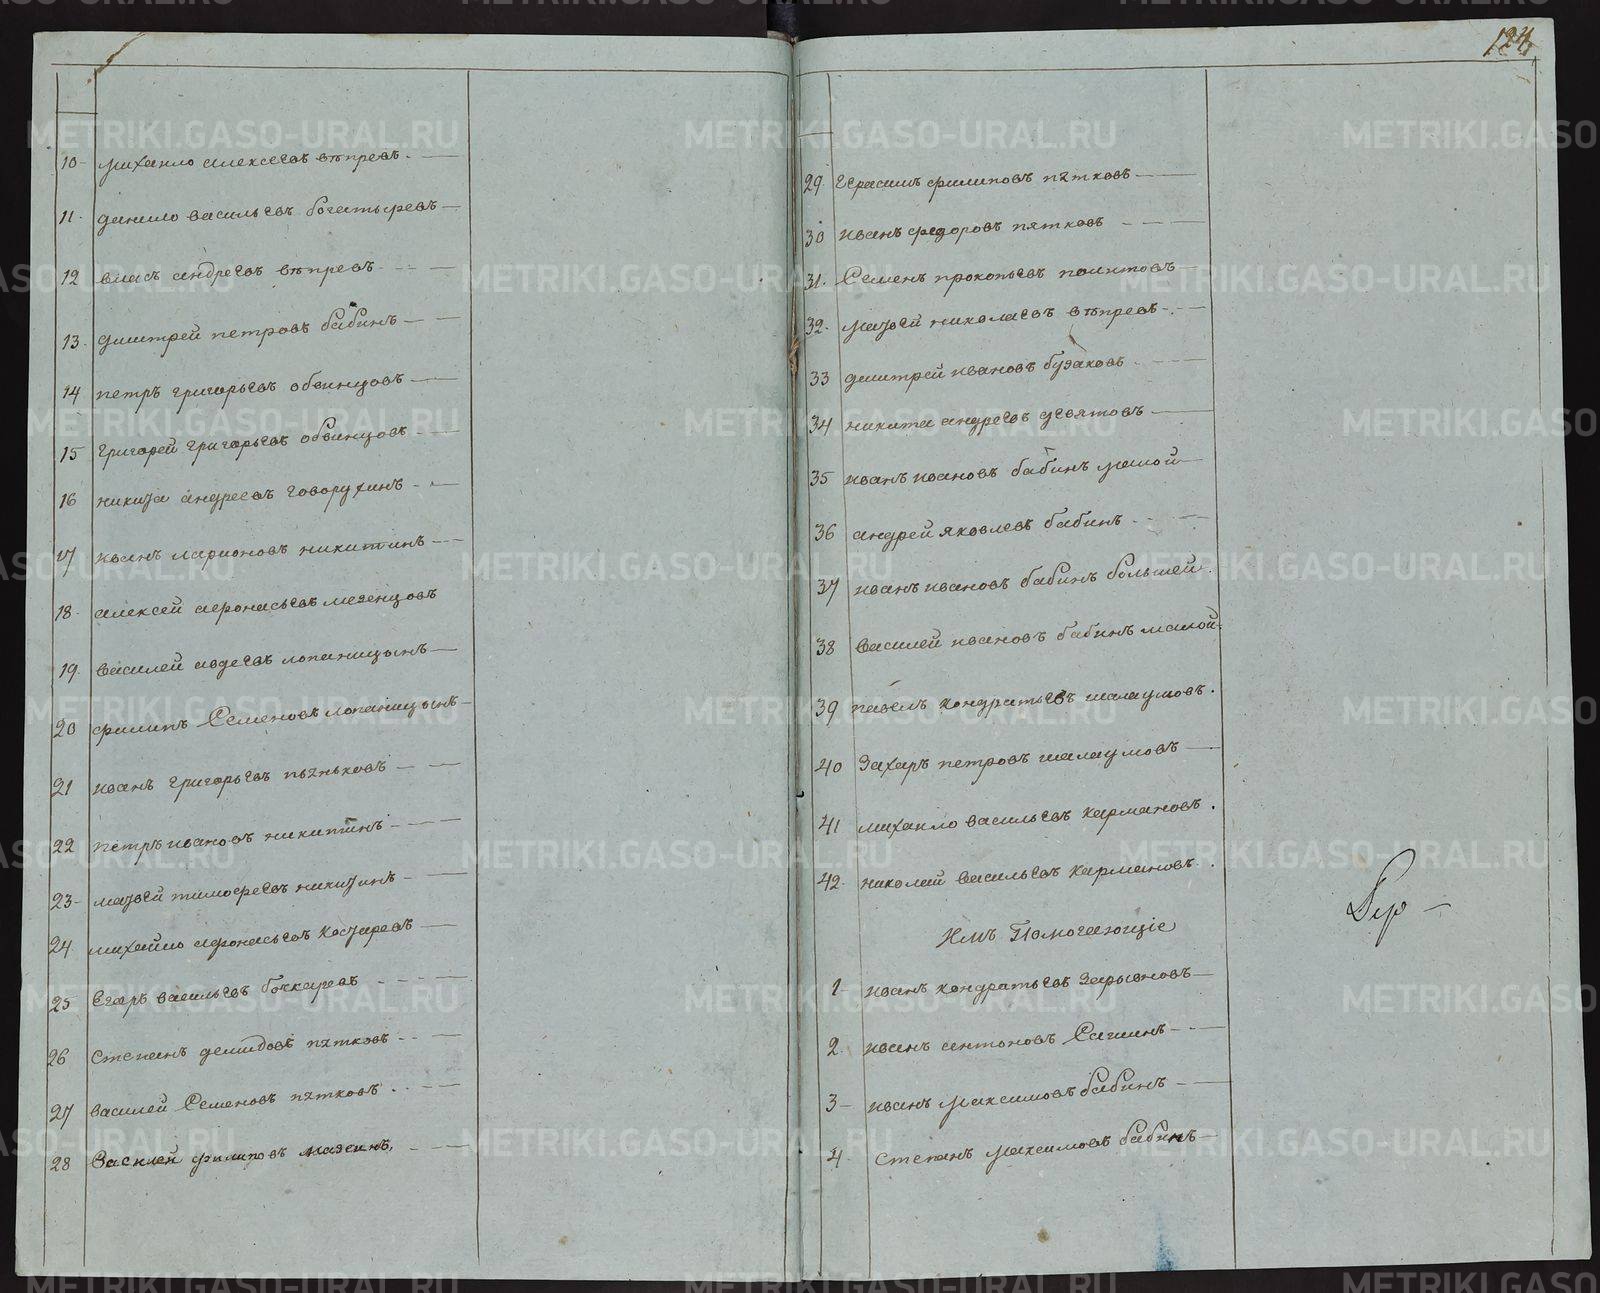 10 михаило алексеевъ вѣпревъ.
11. данило васильевъ богатыревъ
12 власъ андреевъ вѣпревъ
13. дмитрей петровъ бабинъ
14 петръ григорьевъ обвинцовъ
15 григорей григорьевъ обвинцовъ
16 никита андреевъ говорухинъ
17 иванъ ларионовъ никитинъ
18. алексей афонасьевъ мезенцовъ
19. василей авдеевъ лопаницынъ
20 филипъ Семеновъ лопаницынъ
21 иванъ григорьевъ пьянковъ
22 петръ ивановъ никитинъ
23 матвей тимофеевъ никитинъ
24 михайло афонасьевъ косаревъ
25 Егоръ васильевъ бочкаревъ
26 степанъ демидовъ пятковъ
27 василей Семеновъ пятковъ
28 Василей филиповъ мазеинъ
124
29. герасимъ филиповъ пятковъ
30 иванъ федоровъ пятковъ
31. Семенъ прокопьевъ политовъ
32. матвей николаевъ вѣпревъ
33 дмитрей ивановъ бузаковъ
34 никита андреевъ девятовъ
35 иванъ ивановъ бабинъ малой
36 андрей яковлевъ бабинъ
37 иванъ ивановъ бабинъ большей.
38 василей ивановъ бабинъ малой.
39 павелъ кондратьевъ шалаумовъ.
40 Захаръ петровъ шалаумовъ
41 михаило васильевъ кармановъ.
42. николай васильевъ кармановъ.
Имъ Помогающіе
1 иванъ кондратьевъ Зарывновъ
2. иванъ антоновъ Сагинъ
3 иванъ максимовъ бабинъ
4 степанъ максимовъ бабинъ
METRIKI.GASO-URAL.RU